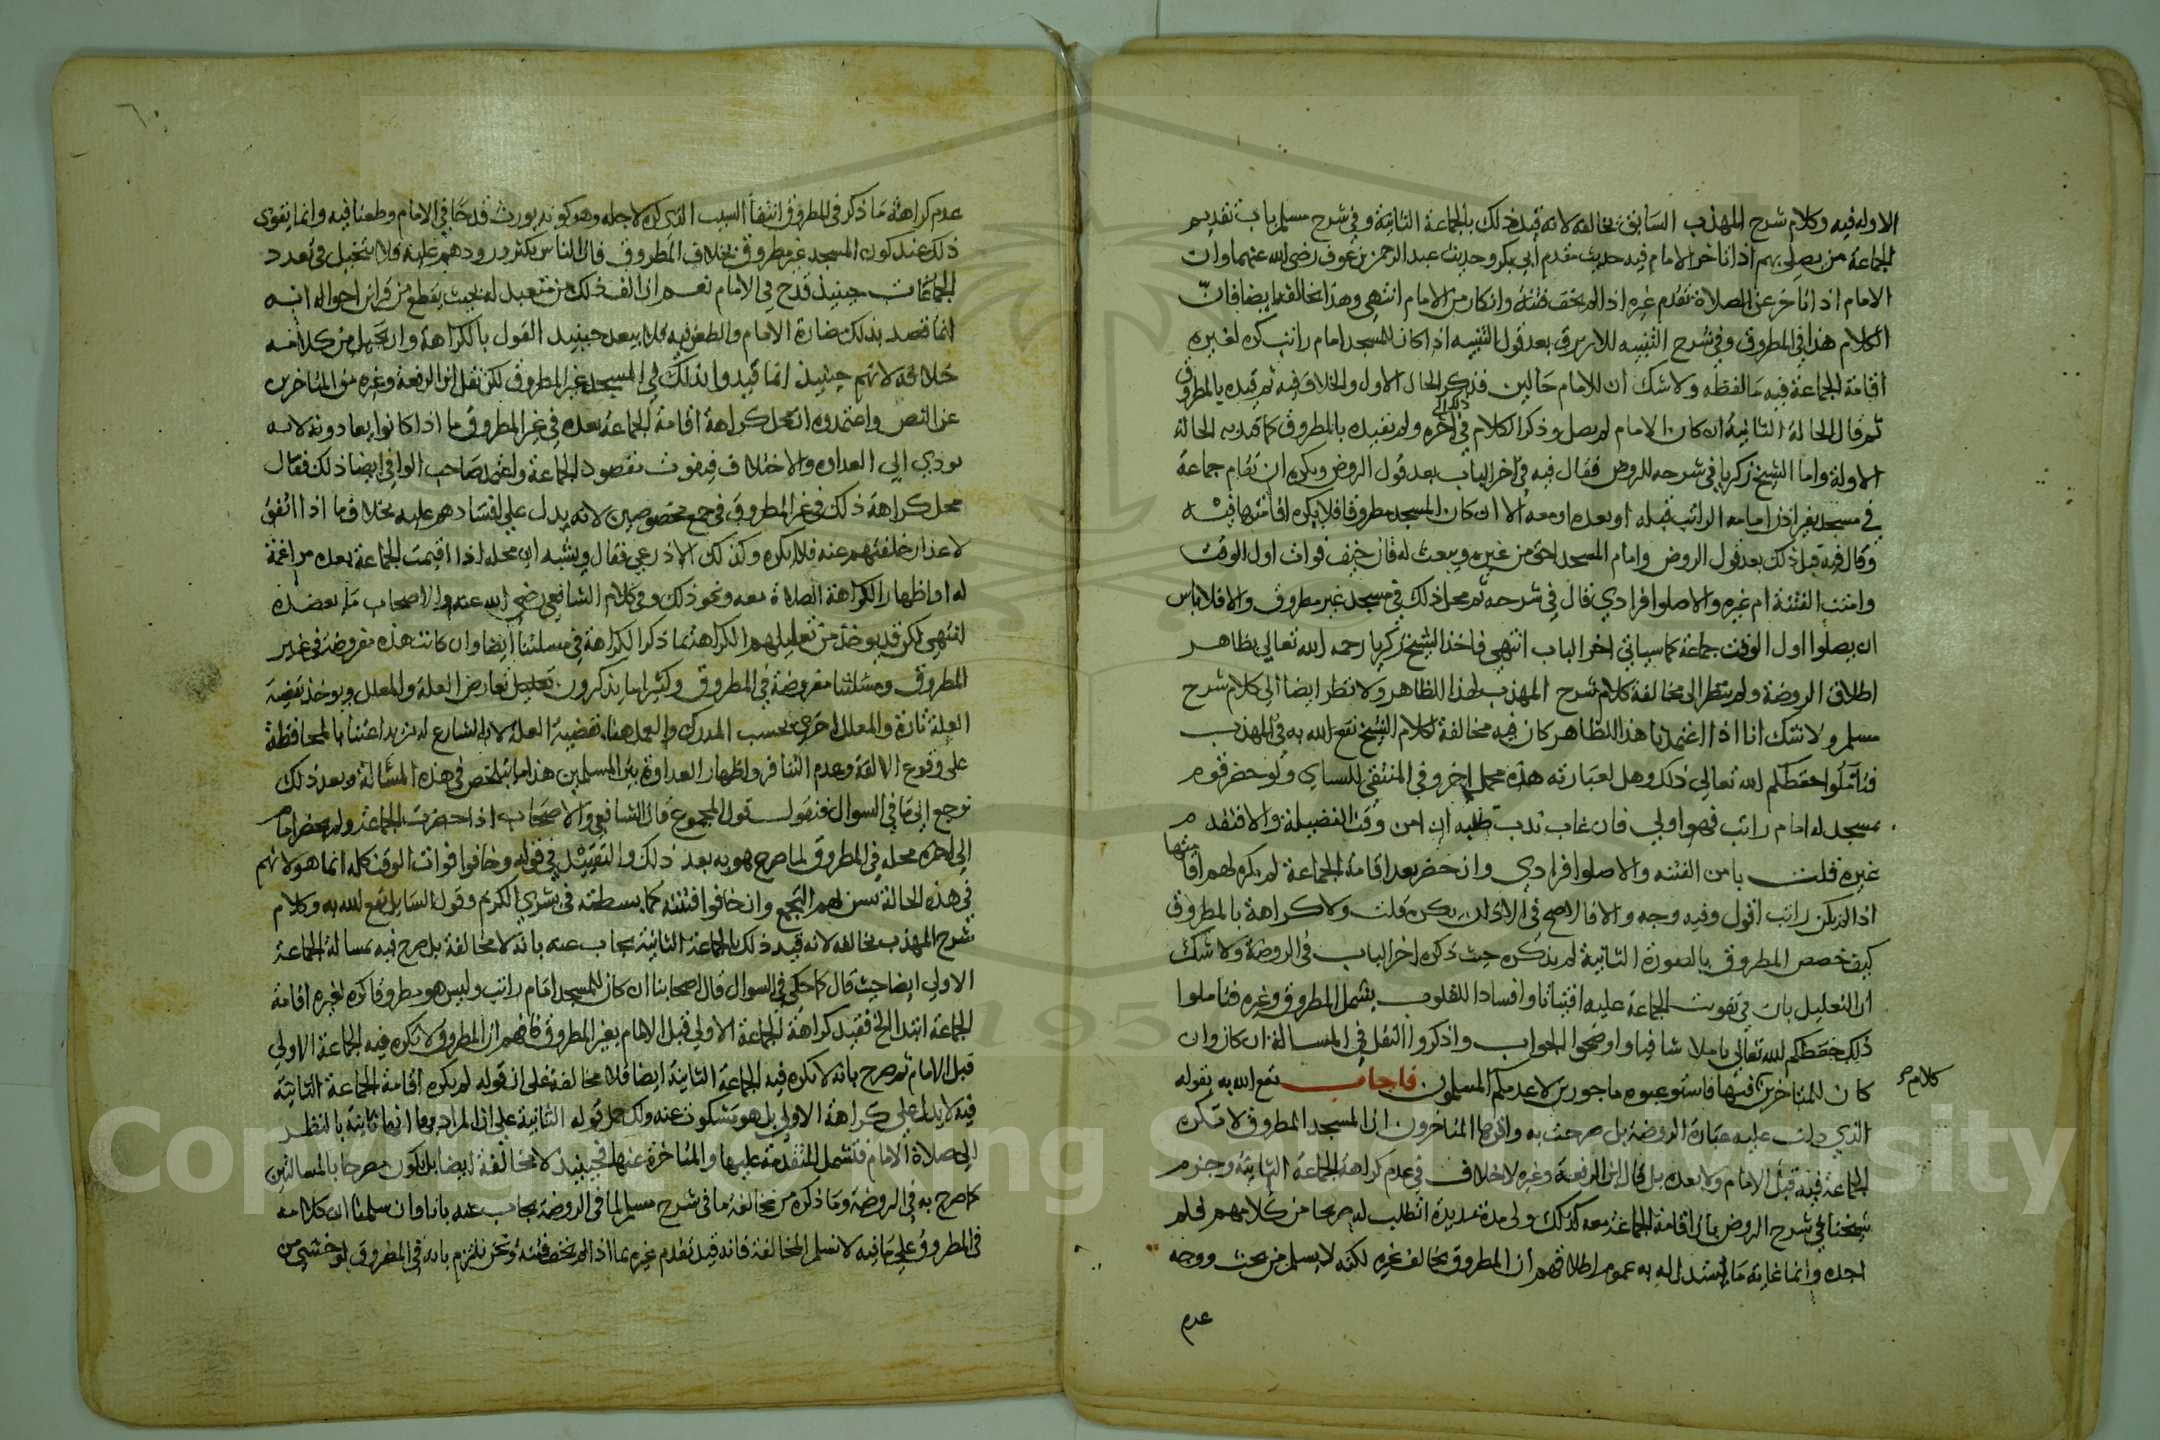 الاوله فيه وكلام شرح المهذب السابق يخالفه لانه قيد ذلك بالجماعة الثانية وفي شرح مسلم باب تقديم
الجماعة من يصلي بهم اذا تاخر الامام فيه حديث تقدم ابي بكر وحديث عبد الرحمن بن عوف رضي الله عنهما وان
الامام اذا تاخر عن الصلاة تقدم غيره اذا لم يخف فتنة وانكار من الامام انتهى وهذا يخالفه ايضا فان
الكلام هذا في المطروق وفي شرح التنبيه للازرق بعد قول التنبيه اذا كان للمسجد امام راتب كره لغيره
اقامة الجماعة فيه ما لفظه ولا شك ان للامام حالين فذكر الحال الاول والخلاف فيه ثم قيده بالمطروق
ثم قال الحالة الثانية ان كان الامام لم يصل وذكر الكلام في اخره ولم يقيده بالمطروق كما قيد به الحالة
الاولة واما الشيخ زكريا في شرحه للروض فقال فيه في اخر الباب بعد قول الروض ويكره ان تقام جماعة
في مسجد بغير اذن امامه الراتب قبله او بعده او معه الا ان كان المسجد مطروقا فلا يكره اقامتها فيه
وقال فيه قبل ذلك بعد قول الروض وامام المسجد احق من غيره ويبعث له فان خيف فوات اول الوقت
وامنت الفتنة ام غيره والا صلوا فرادي قال في شرحه ثم محل ذلك في مسجد غير مطروق والا فلا باس
ان يصلوا اول الوقت جماعة كما سياتي اخر الباب انتهى فاخذ الشيخ زكريا رحمه الله تعالي بظاهر
اطلاق الروضة ولم ينظر الى مخالفة كلام شرح المهذب لهذا الظاهر ولا نظر ايضا الى كلام شرح
مسلم ولا شك انا اذا اعتمدنا هذا الظاهر كان فيه مخالفة لكلام الشيخ نفع الله به في المهذب
فتاملوا حفظكم الله تعالي ذلك وهل لعبارته هذه محمل اخر وفي المنتقى للنساي ولو حضر قوم
بمسجد له امام راتب فهو اولي فان غاب ندب طلبه ان امن وقت الفضيلة والا فتقدم
غيره قلت بامن الفتنه والا صلوا فرادي وان حضر بعد اقامة الجماعة لم يكره لهم اقامتها
اذا لم يكن راتب اقول وفيه وجه والا فالاصح في الاذان يكره قلت ولا كراهة بالمطروق
كيف خصص المطروق بالصورة الثانية لم يذكره حيث ذكره اخر الباب في الروضة ولا شك
ان التعليل بان في تفويت الجماعة عليه افتياتا وافسادا للقلوب يشمل المطروق وغيره فتاملوا
ذلك حفظكم الله تعالي تاملا شافيا واوضحوا الجواب واذكروا النقل في المسالة ان كان وان
كان للمتاخرين فيها كلام فاستوعبوه ماجورين لا عدمكم المسلمون فاجاب نفع الله به بقوله
الذي دلت عليه عبارة الروضة بل صرحت به واقرها المتاخرون ان المسجد المطروق لا تكره
الجماعة فيه قبل الامام ولا بعده بل قال ابن الرفعة وغيره لا خلاف في عدم كراهة الجماعة الثانية وجزم
شيخنا في شرح الروض بان اقامة الجماعة معه كذلك ولي مدة مديدة اتطلب له صريحا من كلامهم فلم
اجده وانما غاية ما يستدل له به عموم اطلاقهم ان المطروق يخالف غيره لكنه لا يسلم من بحث ووجه
عدم
عدم كراهة ما ذكر في المطروق انتفا السبب الذي كره لاجله وهو كونه يورث قدحا في الامام وطعنا فيه وانما يقوى
ذلك عند كون المسجد غير مطروق بخلاف المطروق فان الناس يكثر ورودهم عليه فلا يتخيل في تعدد
الجماعات حينيذ قدح في الامام نعم ان الف ذلك من متعبد له بحيث يقطع من قراين احواله انه
انما قصد بذلك مضارة الامام والطعن فيه فلا يبعد حينيذ القول بالكراهة وان تحيل من كلامه
خلافه لانهم حينيذ انما قيدوا بذلك في المسجد غير المطروق لكن نقل ابن الرفعة وغيره من المتاخرين
عن النص واعتمدوه ان محل كراهة اقامة الجماعة بعده في غير المطروق ما اذا كانوا يعادونه لانه
يودي الى العداوة والاختلاف فيفوت مقصود الجماعة واعتمد صاحب الوافي ايضا ذلك فقال
محل كراهة ذلك في غير المطروق في جمع مخصوصين لانه يدل علي افسادهم عليه بخلاف ما اذا اتفق
لاعذار خلفتهم عنه فلا يكره وكذلك الاذرعي فقال ويشبه ان محله اذا اقيمت الجماعة بعده مراغمة
له او اظهارا لكراهة الصلاة معه ونحو ذلك وفي كلام الشافعي رضي الله عنه والاصحاب ما يعضده
انتهى لكن قد يوخذ من تعليلهم الكراهة بما ذكر الكراهة في مسلتنا ايضا وان كانت هذه مفروضة في غير
المطروق ومسلتنا مفروضة في المطروق وكثيرا ما يذكرون تعليل تعارض العلة والمعلل ويوخذ بقضية
العلة تارة والمعلل اخرى بحسب المدرك والعمل هنا بقضية العلة لان الشارع له مزيد اعتنا بالمحافظة
على وقوع الالفة وعدم التنافر واظهار العداوة بين المسلمين هذا ما يتلخص في هذه المسالة وبعد ذلك
نرجع الى ما في السوال فنقول قول المجموع قال الشافعي والاصحاب اذا حضرت الجماعة ولم يحضر امام
الى اخره محله في المطروق لما صرح هو به بعد ذلك والتقييد في قوله وخافوا فوات الوقت كله انما هو لانهم
في هذه الحالة يسن لهم التجمع وان خافوا فتنته كما بسطته في بشرى الكريم وقول السايل نفع الله به وكلام
شرح المهذب يخالفه لانه قيد ذلك بالجماعة الثانية يجاب عنه بانه لا مخالفة بل صرح فيه بمسالة الجماعة
الاولي ايضا حيث قال كما حكي في السوال قال اصحابنا ان كان للمسجد امام راتب وليس هو مطروقا كره لغيره اقامة
الجماعة ابتدا الخ فقيد كراهة الجماعة الاولي قبل الامام بغير المطروق فافهم ان المطروق لا تكره فيه الجماعة الاولي
قبل الامام ثم صرح بانه لا تكره فيه الجماعة الثانية ايضا فلا مخالفة على ان قوله لم يكره اقامة الجماعة الثانية
فيه لا يدل علي كراهة الاولي بل هو مسكوت عنه ولك حمل قوله الثانية على ان المراد بها انها ثانية بالنظر
الى صلاة الامام فتشمل المتقدمة عليها والمتاخرة عنها فحينيذ لا مخالفة ايضا بل يكون مصرحا بالمسالتين
كما صرح به في الروضة وما ذكره من مخالفة ما في شرح مسلم لما في الروضة يجاب عنه بانا وان سلمنا ان كلامه
في المطروق علي ما فيه لا نسلم المخالفة فانه قيد تقدم غيره بما اذا لم يخف فتنه ونحن نلتزم بانه في المطروق لو خشي من